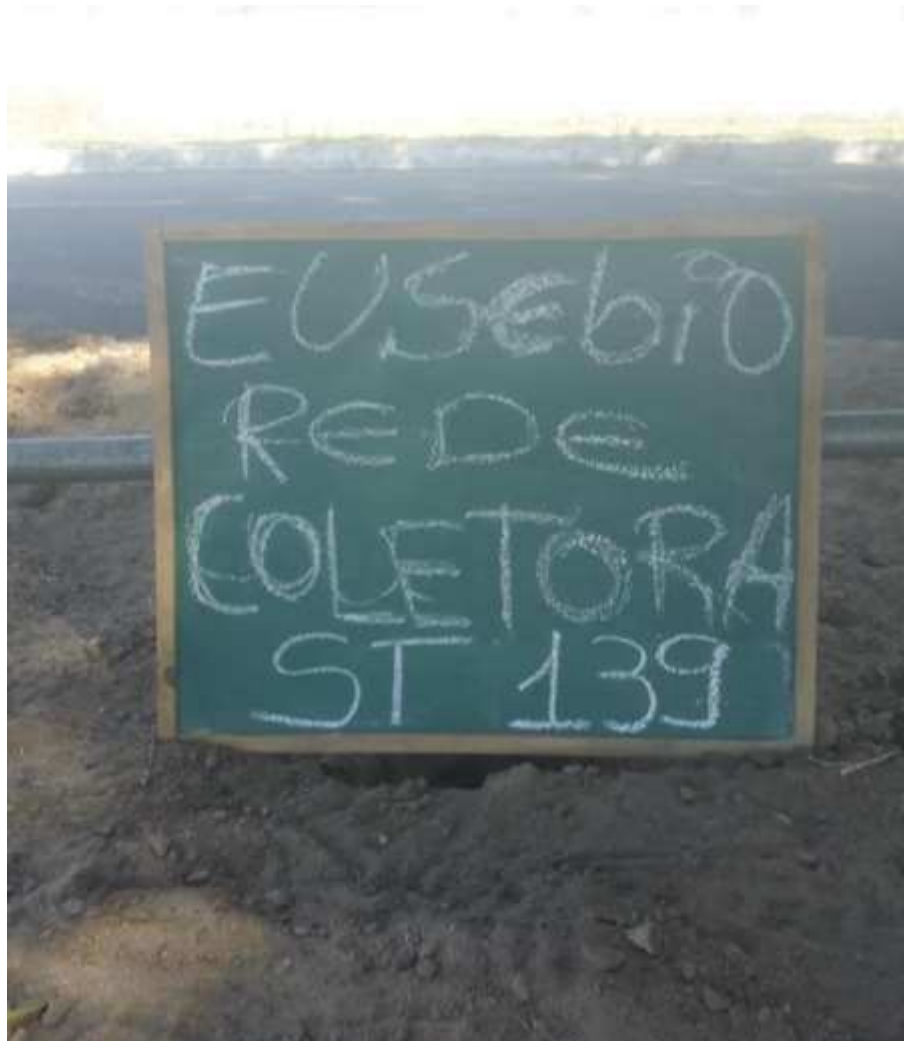 EUSEbiO
REDE
COLETORA
ST 139